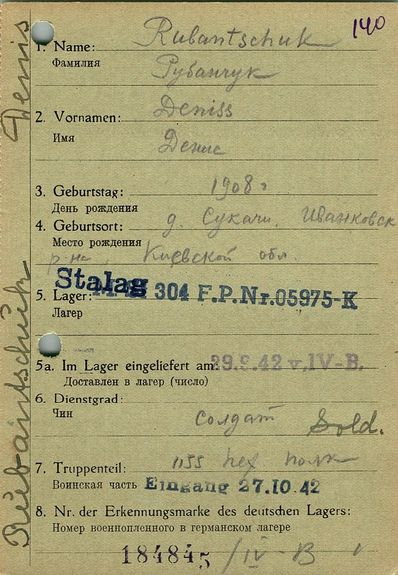 140
1. Name: Rubantschuk
Фамилия Рубанчук
2. Vornamen: Deniss
Имя Денис
3. Geburtstag: 1908 г
День рождения
4. Geburtsort: д. Сукачи, Иванковск
Место рождения
р-на, Киевской обл.
5. Lager: Stalag 304 F.P.Nr.05975-K
Лагер
5a. Im Lager eingeliefert am: 29.9.42 v. IV-B.
Доставлен в лагер (число)
6. Dienstgrad:
Чин солдат Sold.
7. Truppenteil: 1155 пех полк
Воинская часть Eingang 27.10.42
8. Nr. der Erkennungsmarke des deutschen Lagers:
Номер военнопленного в германском лагере
184845 / IV-B
Rubantschuk Denis